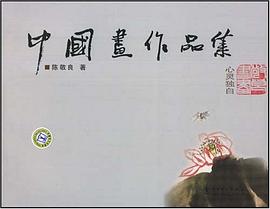 中國畫作品集
■陈敬良 著
心灵独白